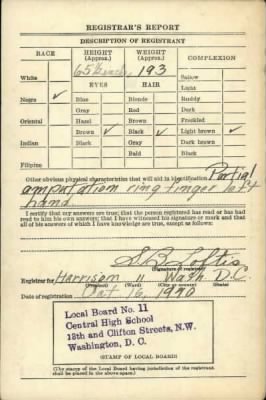 REGISTRAR'S REPORT
DESCRIPTION OF REGISTRANT
RACE HEIGHT (Approx.) WEIGHT (Approx.) COMPLEXION
65½ inch 193
White EYES HAIR Sallow
Light
Negro ✓ Blue Blonde Ruddy
Gray Red Dark
Oriental Hazel Brown Freckled
Brown ✓ Black ✓ Light brown ✓
Indian Black Gray Dark brown
Bald Black
Filipino
Other obvious physical characteristics that will aid in identification Partial
amputation ring finger left
hand
I certify that my answers are true; that the person registered has read or has had
read to him his own answers; that I have witnessed his signature or mark and that
all of his answers of which I have knowledge are true, except as follows:
S B Loftis
(Signature of registrar)
Registrar for Harrison 11 Wash D.C.
(Precinct) (Ward) (City or county) (State)
Date of registration Oct 16, 1940
Local Board No. 11
Central High School
13th and Clifton Streets, N.W.
Washington, D. C.
(STAMP OF LOCAL BOARD)
(The stamp of the Local Board having jurisdiction of the registrant
shall be placed in the above space.)